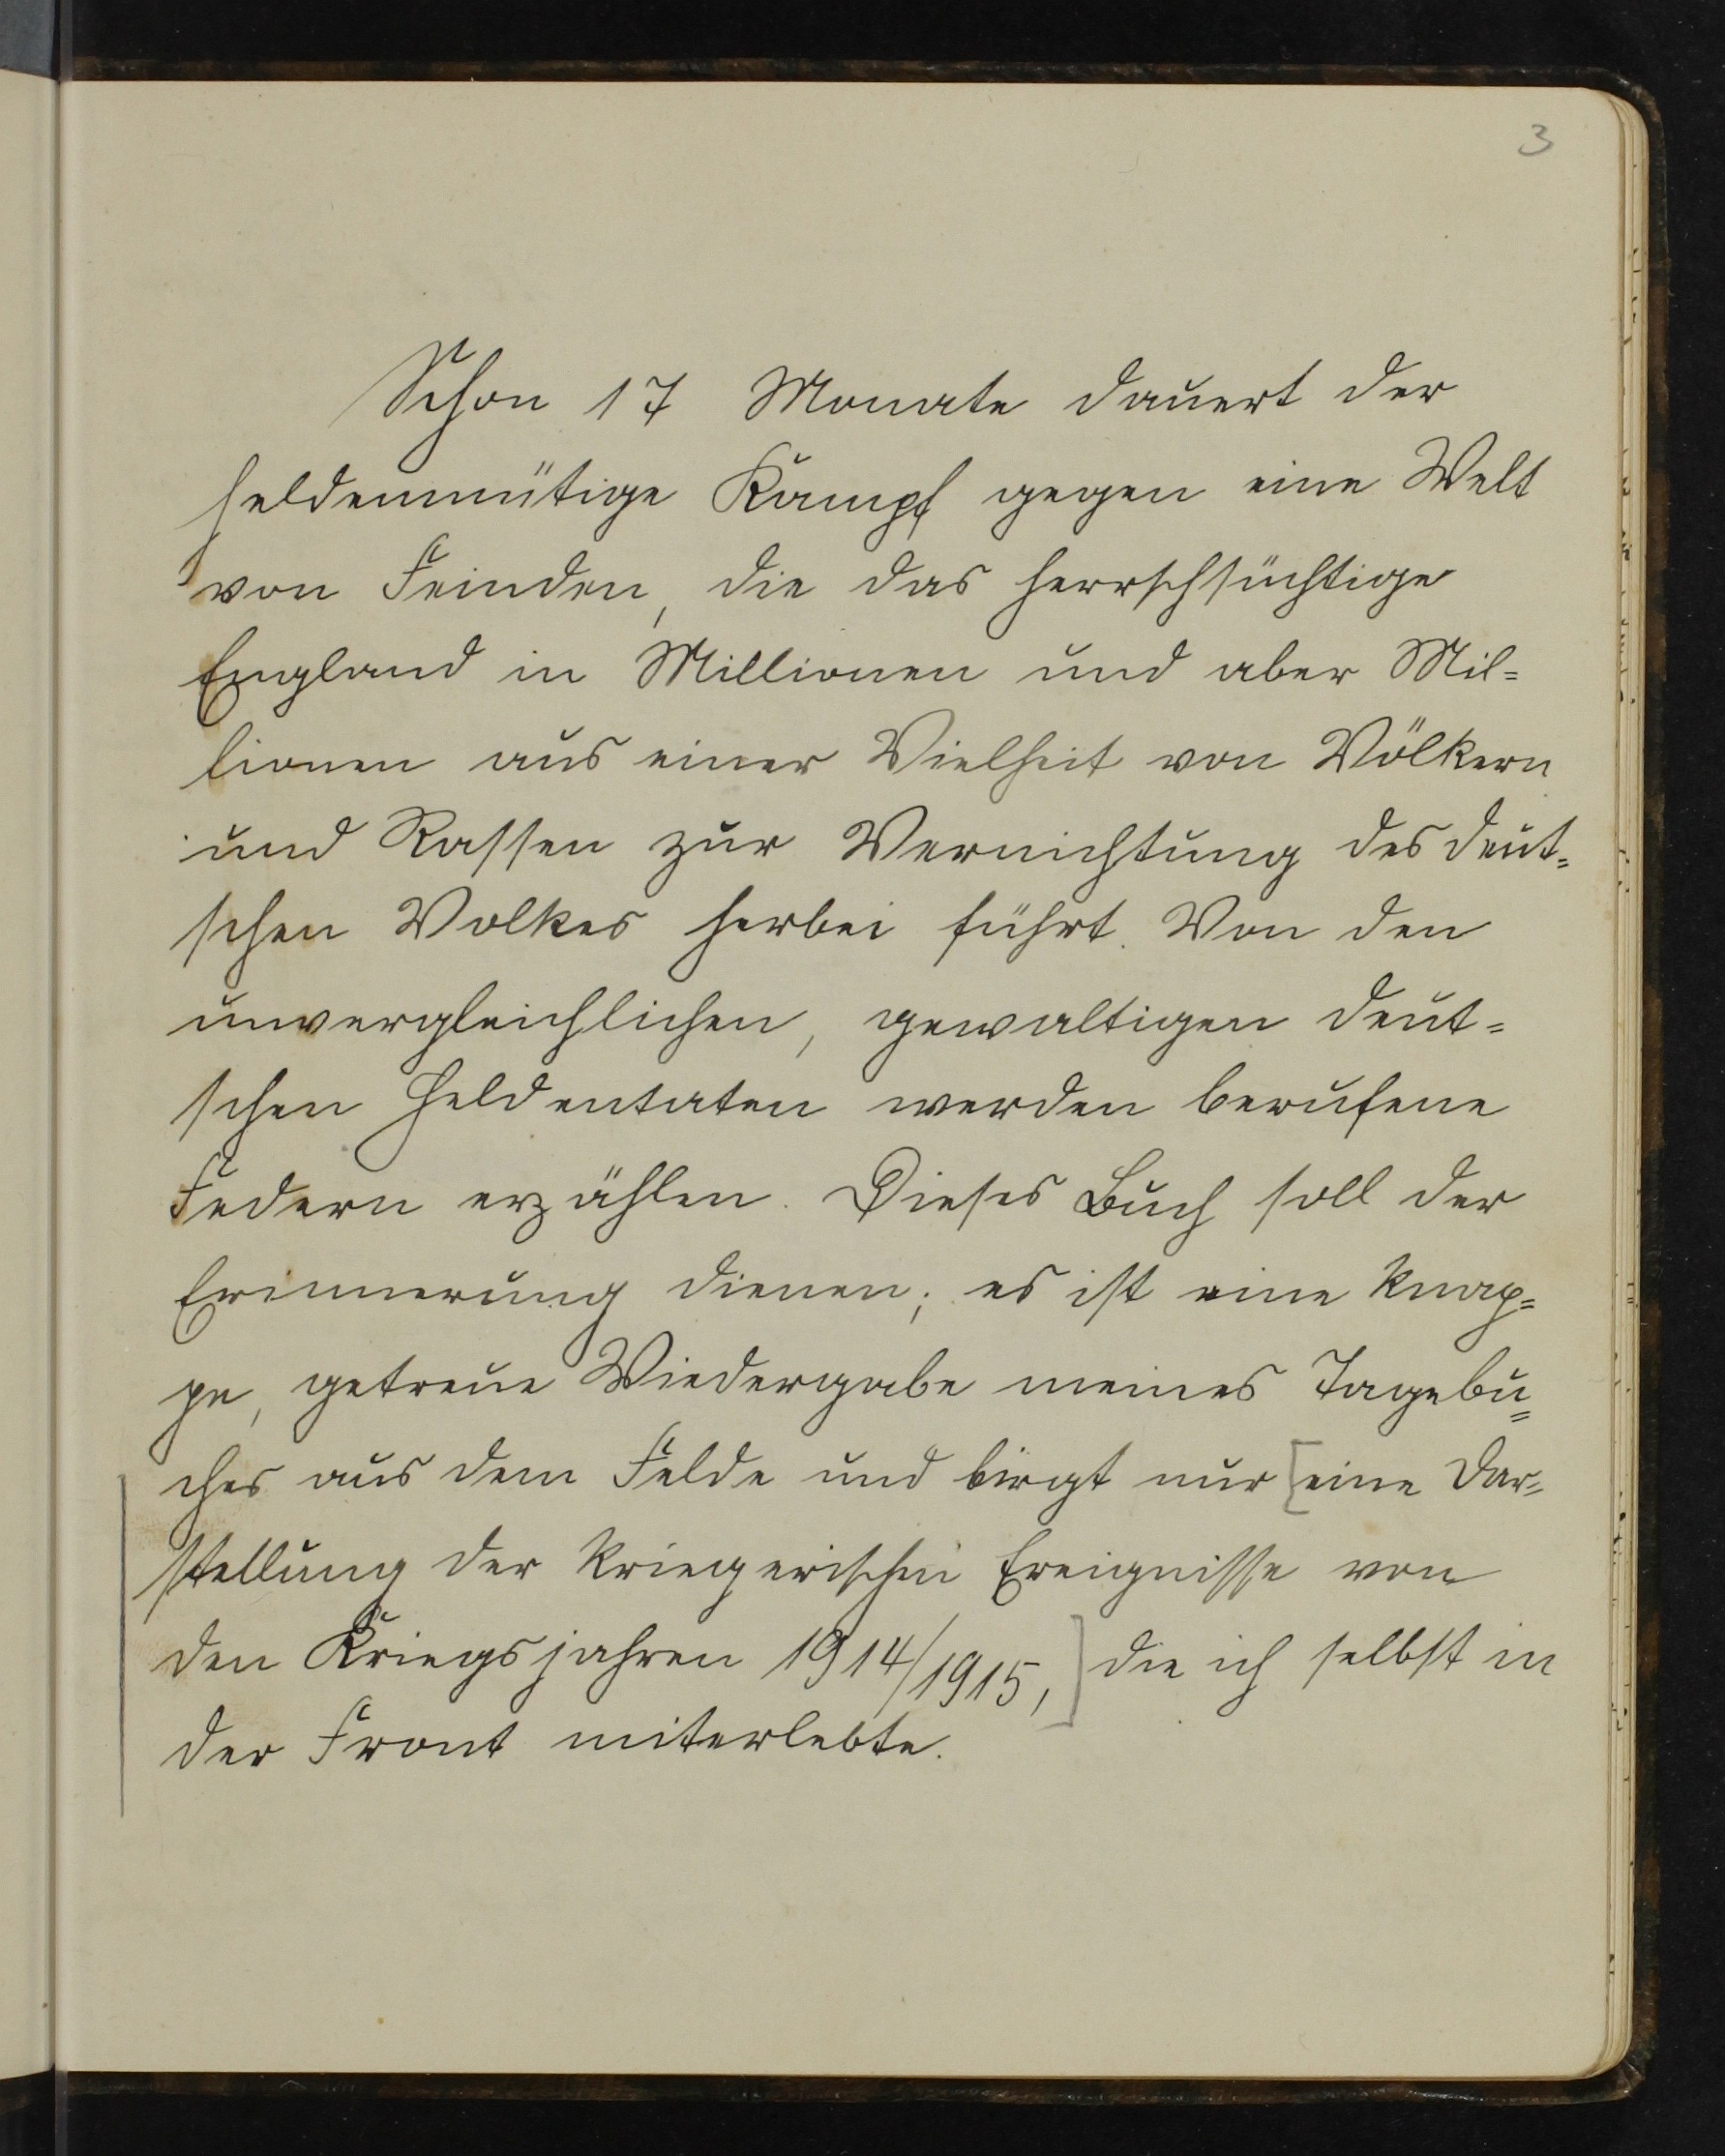 3
Schon 17 Monate dauert der
heldenmütige Kampf gegen eine Welt
von Feinden, die das herrschsüchtige
England in Millionen und aber Mil=
lionen aus einer Vielheit von Völkern
und Rassen zur Vernichtung des deut=
schen Volkes herbei führt. Von den
unvergleichlichen, gewaltigen deut=
schen Heldentaten werden berufene
Federn erzählen. Dieses Buch soll der
Erinnerung dienen; es ist eine knap=
pe, getreue Wiedergabe meines Tagebu=
ches aus dem Felde und birgt nur [eine Dar=
stellung der kriegerischen Ereignisse von
den Kriegsjahren 1914/1915,] die ich selbst in
der Front miterlebte.